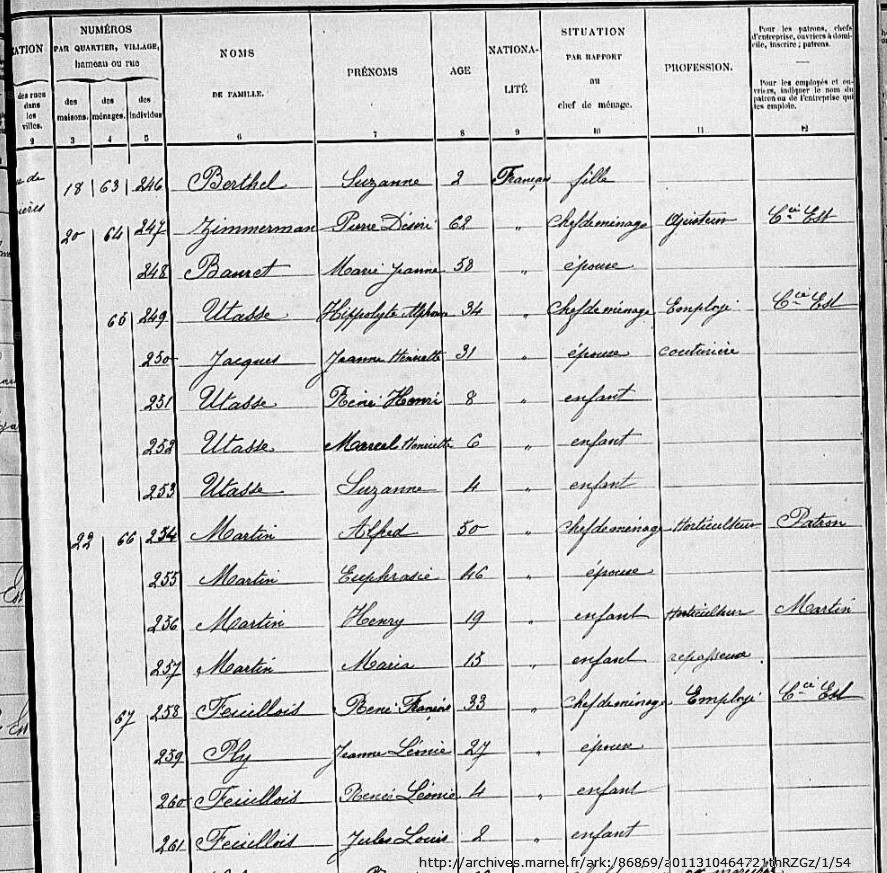 NUMÉROS
PAR QUARTIER, VILLAGE,
hameau ou rue
des rues dans les villes.
des maisons.
des ménages.
des individus
NOMS
DE FAMILLE.
PRÉNOMS
AGE
NATIONA-
LITÉ
SITUATION
PAR RAPPORT
au
chef de ménage.
PROFESSION.
Pour les patrons, chefs
d'entreprise, ouvriers à domi-
cile, inscrire : patrons.
Pour les employés et ou-
vriers, indiquer le nom du
patron ou de l'entreprise qui
les emploie.
2 3 4 5 6 7 8 9 10 11 12
18 63 246 Berthel Suzanne 2 Français fille
20 64 247 Zimmerman Pierre Désiré 62 " chef de ménage Ajusteur Cie Est
248 Bauret Marie Jeanne 58 " épouse
65 249 Utasse Hippolyte Alphonse 34 " chef de ménage Employé Cie Est
250 Jacques Jeanne Henriette 31 " épouse couturière
251 Utasse René Henri 8 " enfant
252 Utasse Marcel Henriette 6 " enfant
253 Utasse Suzanne 4 " enfant
22 66 254 Martin Alfred 50 " chef de ménage Horticulteur Patron
255 Martin Euphrasie 46 " épouse
256 Martin Henry 19 " enfant Horticulteur Martin
257 Martin Maria 15 " enfant repasseuse
67 258 Feuillois René 33 " chef de ménage Employé Cie Est
259 Ply Jeanne Léonie 27 " épouse
260 Feuillois Renée Léonie 4 " enfant
261 Feuillois Jules Louis 2 " enfant
http://archives.marne.fr/ark:/86869/a011310464721thRZGz/1/54